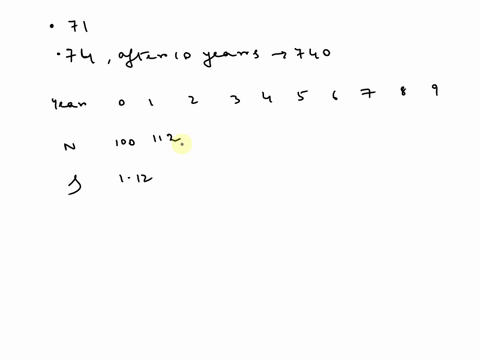 • 71
• 74, after 10 years → 740
Year 0 1 2 3 4 5 6 7 8 9
N 100 112
1.12